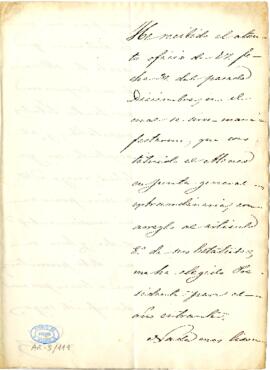 He recibido el aten-
to oficio de V. fe-
cha del pasado
Diciembre, en el
que se sirve mani-
festarme, que cons-
tituido el Ateneo
en junta general
extraordinaria, con
arreglo al artículo
8.º de sus Estatutos,
me ha elegido Pre-
sidente para el
año entrante.
Nada mas
AR-5/119